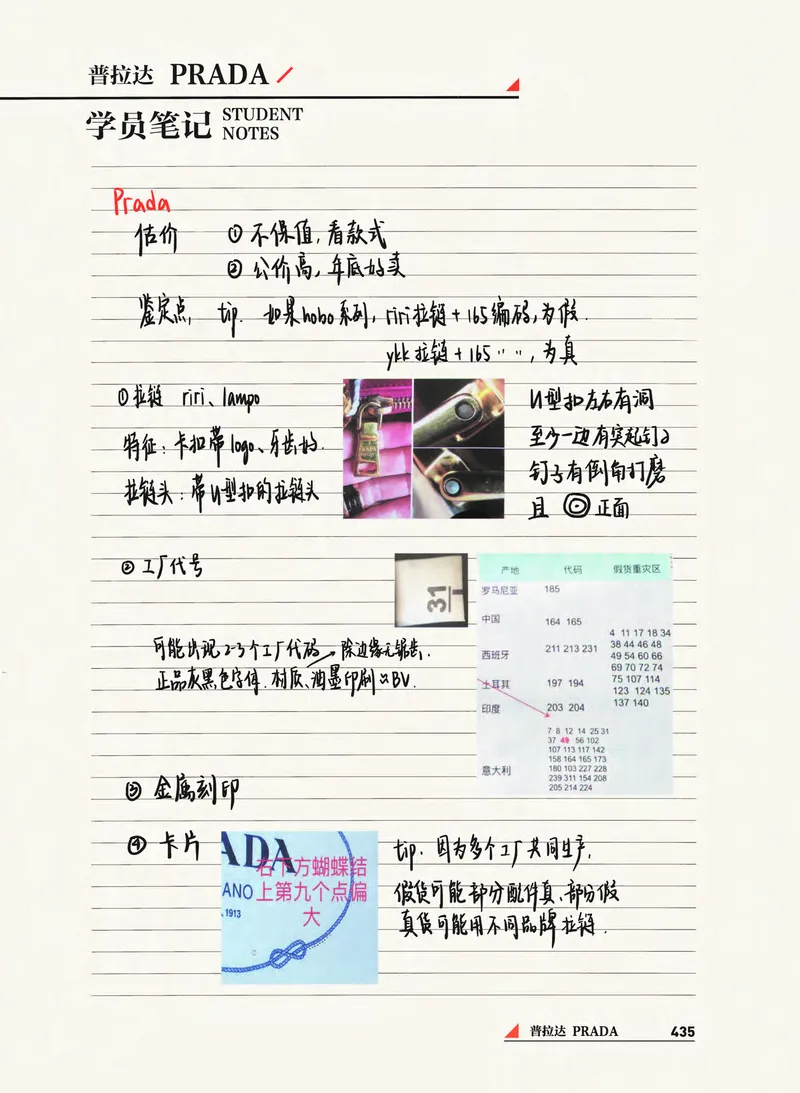 普拉达 PRADA
学员笔记 STUDENT NOTES
Prada
估价 ① 不保值,看款式
② 公价高,年底好卖
鉴定点, tip. 如果hobo系列, riri拉链+165编码,为假.
ykk拉链+165‥‥,为真
①拉链 riri、lampo
特征:卡扣带logo、牙齿好.
拉链头:带U型扣的拉链头
U型扣左右有洞
至少一边有突起钉子
钉子有倒角打磨
且 正面
② 工厂代号
31
可能出现2-3个工厂代码→除边缘无锯齿.
正品灰黑色字体.材质、油墨印刷 BV.
产地 代码 假货重灾区
罗马尼亚 185
中国 164 165
西班牙 211 213 231
土耳其 197 194
印度 203 204
意大利
7 8 12 14 25 31
37 49 56 102
107 113 117 142
158 164 165 173
180 103 227 228
239 311 154 208
205 214 224
4 11 17 18 34
38 44 46 48
49 54 60 66
69 70 72 74
75 107 114
123 124 135
137 140
③ 金属刻印
④ 卡片
ADA
ANO
1913
右下方蝴蝶结
上第九个点偏
大
tip. 因为多个工厂共同生产,
假货可能部分配件真、部分假
真货可能用不同品牌拉链.
普拉达 PRADA 435